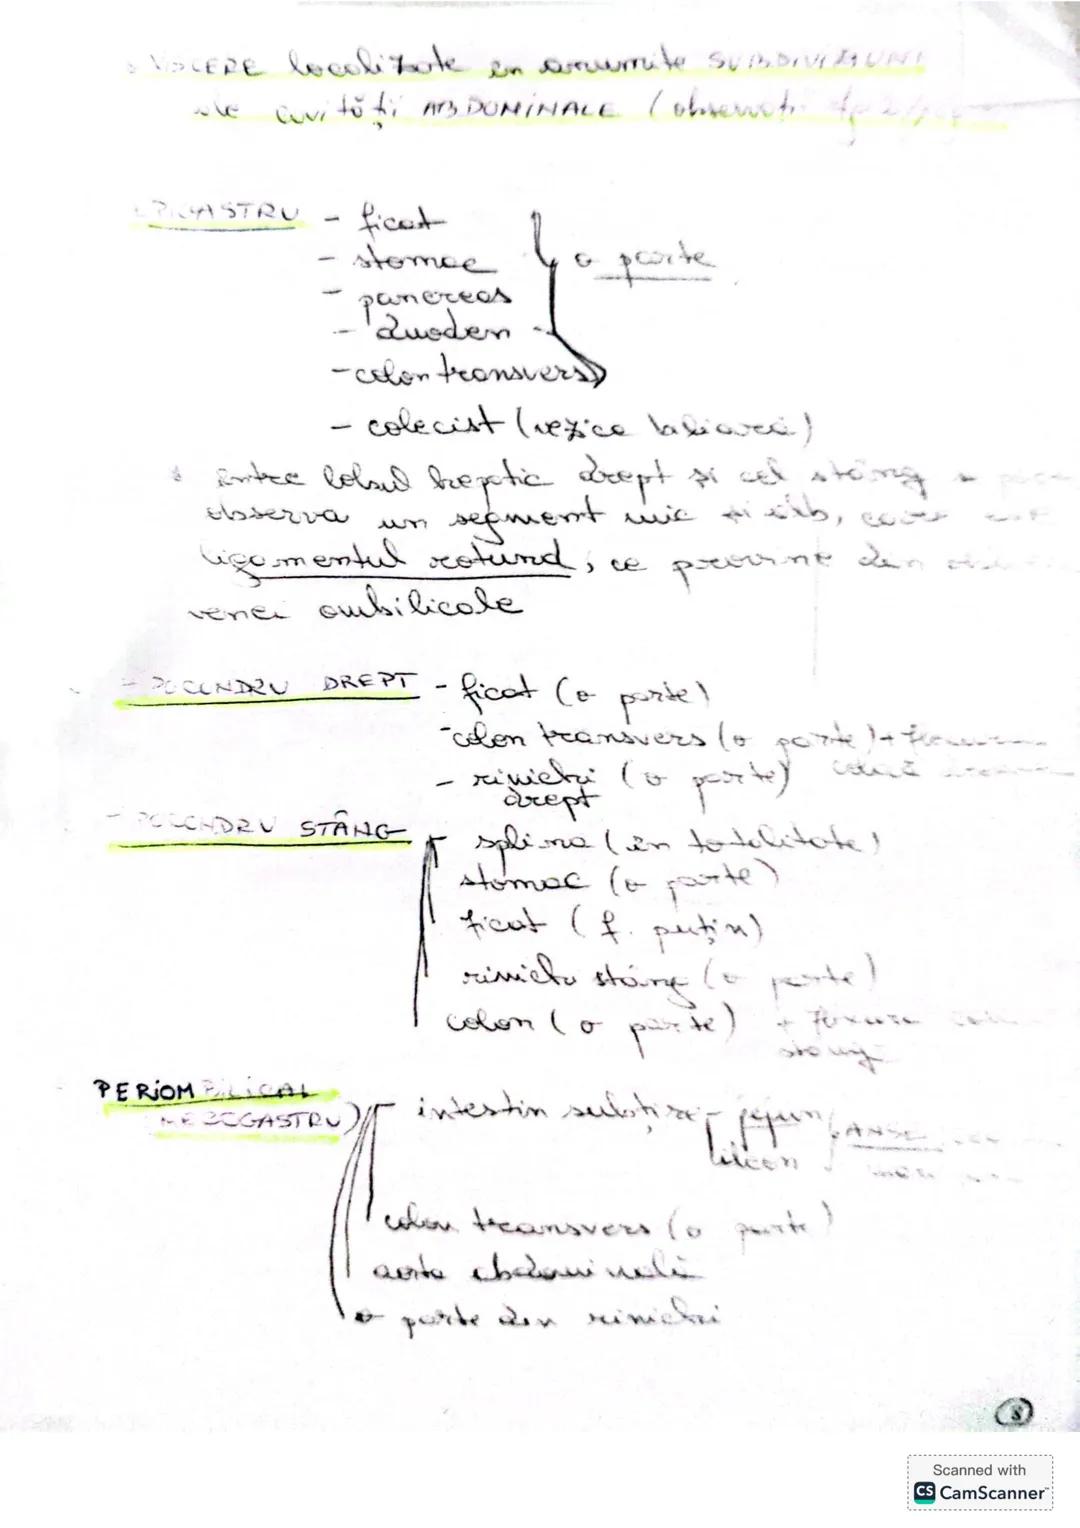 VISCERE localizate în anumite SUBDIVIZIUNI
ale cavității ABDOMINALE (observați
EPIGASTRU - ficat
- stomac
o parte
- pancreas
- duoden
- colon transvers
- colecist (vezica biliară)
Între lobul hepatic drept și cel stâng
observa un segment mic și alb, care este
ligamentul rotund, ce provine din
venei ombilicale
- POCONDRU DREPT - ficat (o parte)
- colon transvers (o parte) +
- rinichi (o parte)
drept
- POCONDRU STÂNG
splina (în totalitate)
stomac (o parte)
ficat (f. puțin)
rinichi stâng (o parte)
colon (o parte) + flexura
stâng
PERIOMBILICAL
MEZOGASTRU)
intestin subțire - jejun ANSE
ileon
colon transvers (o parte)
aorta abdominală
o parte din rinichi
8
Scanned with
CS CamScanner